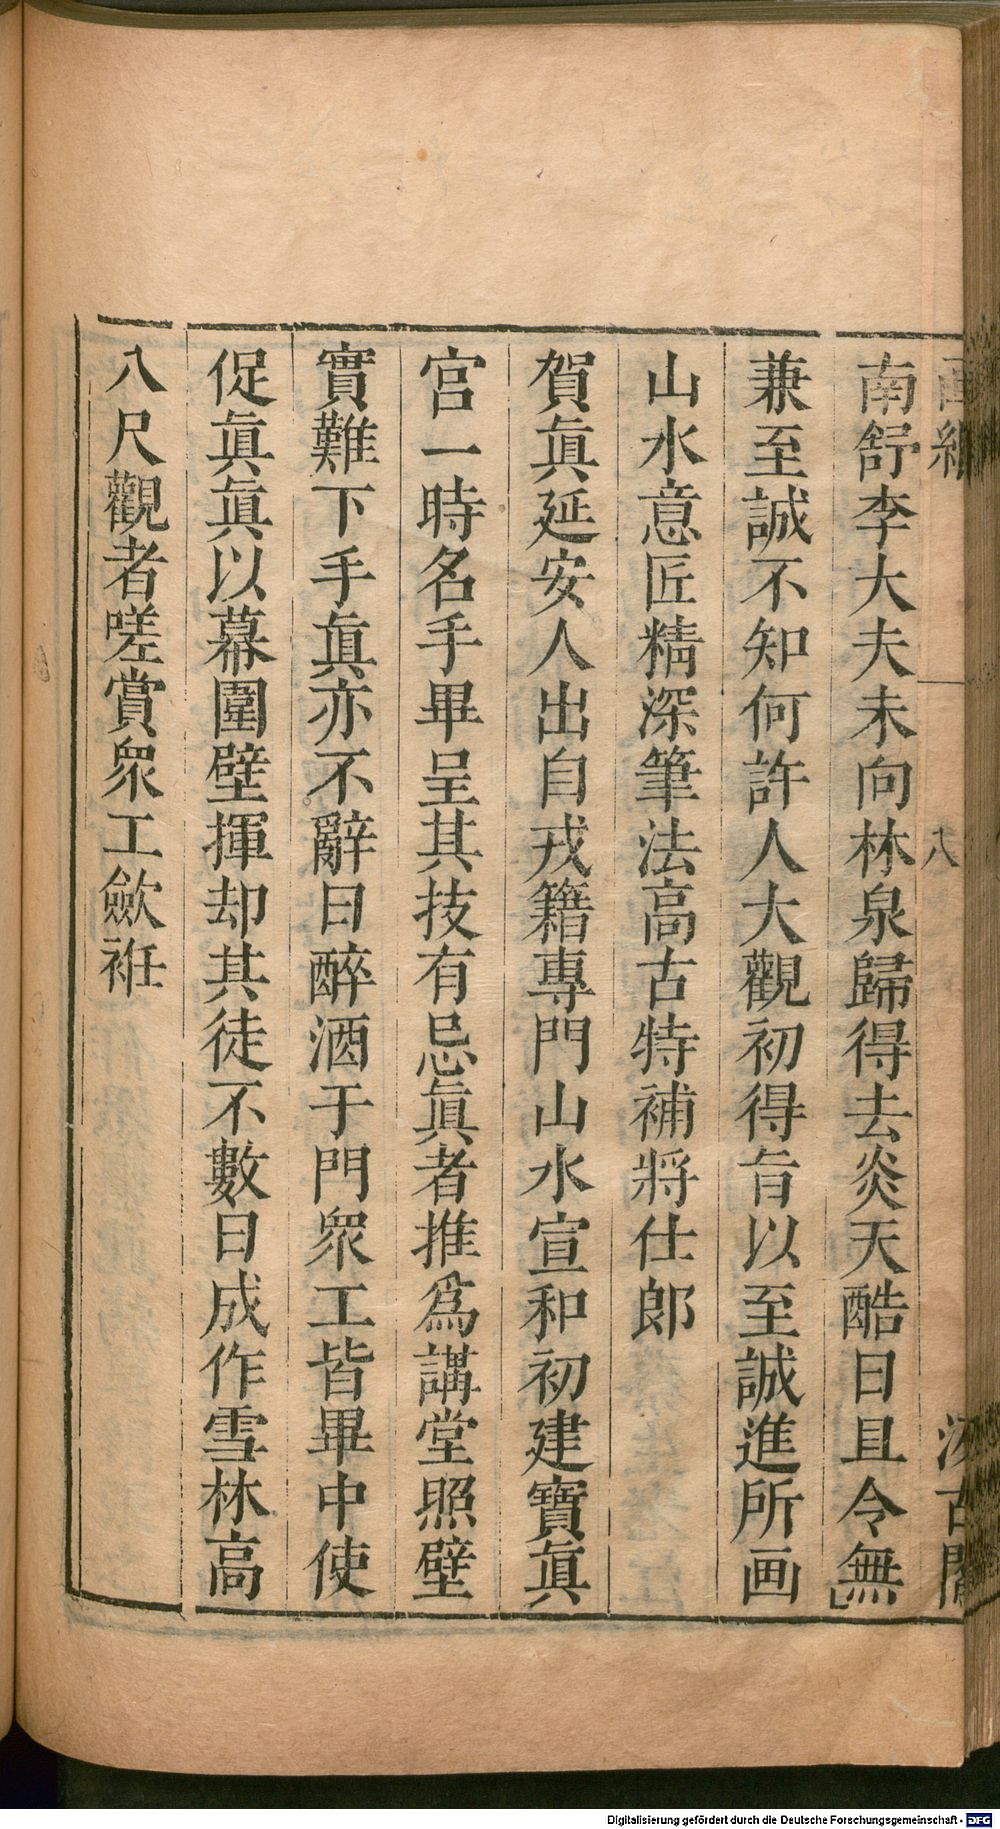 南舒李大夫未向林泉歸得去炎天酷日且令無
兼至誠不知何許人大觀初得旨以至誠進所画
山水意匠精深筆法高古特補將仕郎
賀眞延安人出自戎籍專門山水宣和初建寶眞
宮一時名手畢呈其技有忌眞者推爲講堂照壁
實難下手眞亦不辭日醉酒于門眾工皆畢中使
促眞眞以幕圍壁揮却其徒不數日成作雪林高
八尺觀者嗟賞眾工歛袵
八
汲古閣
Digitalisierung gefördert durch die Deutsche Forschungsgemeinschaft - DFG